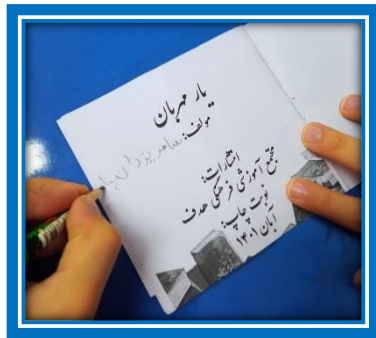 یار مهربان
مؤلف:
انتشارات:
مجتمع آموزشی فرهنگی هدف
نوبت چاپ:
آبان ۱۴۰۱